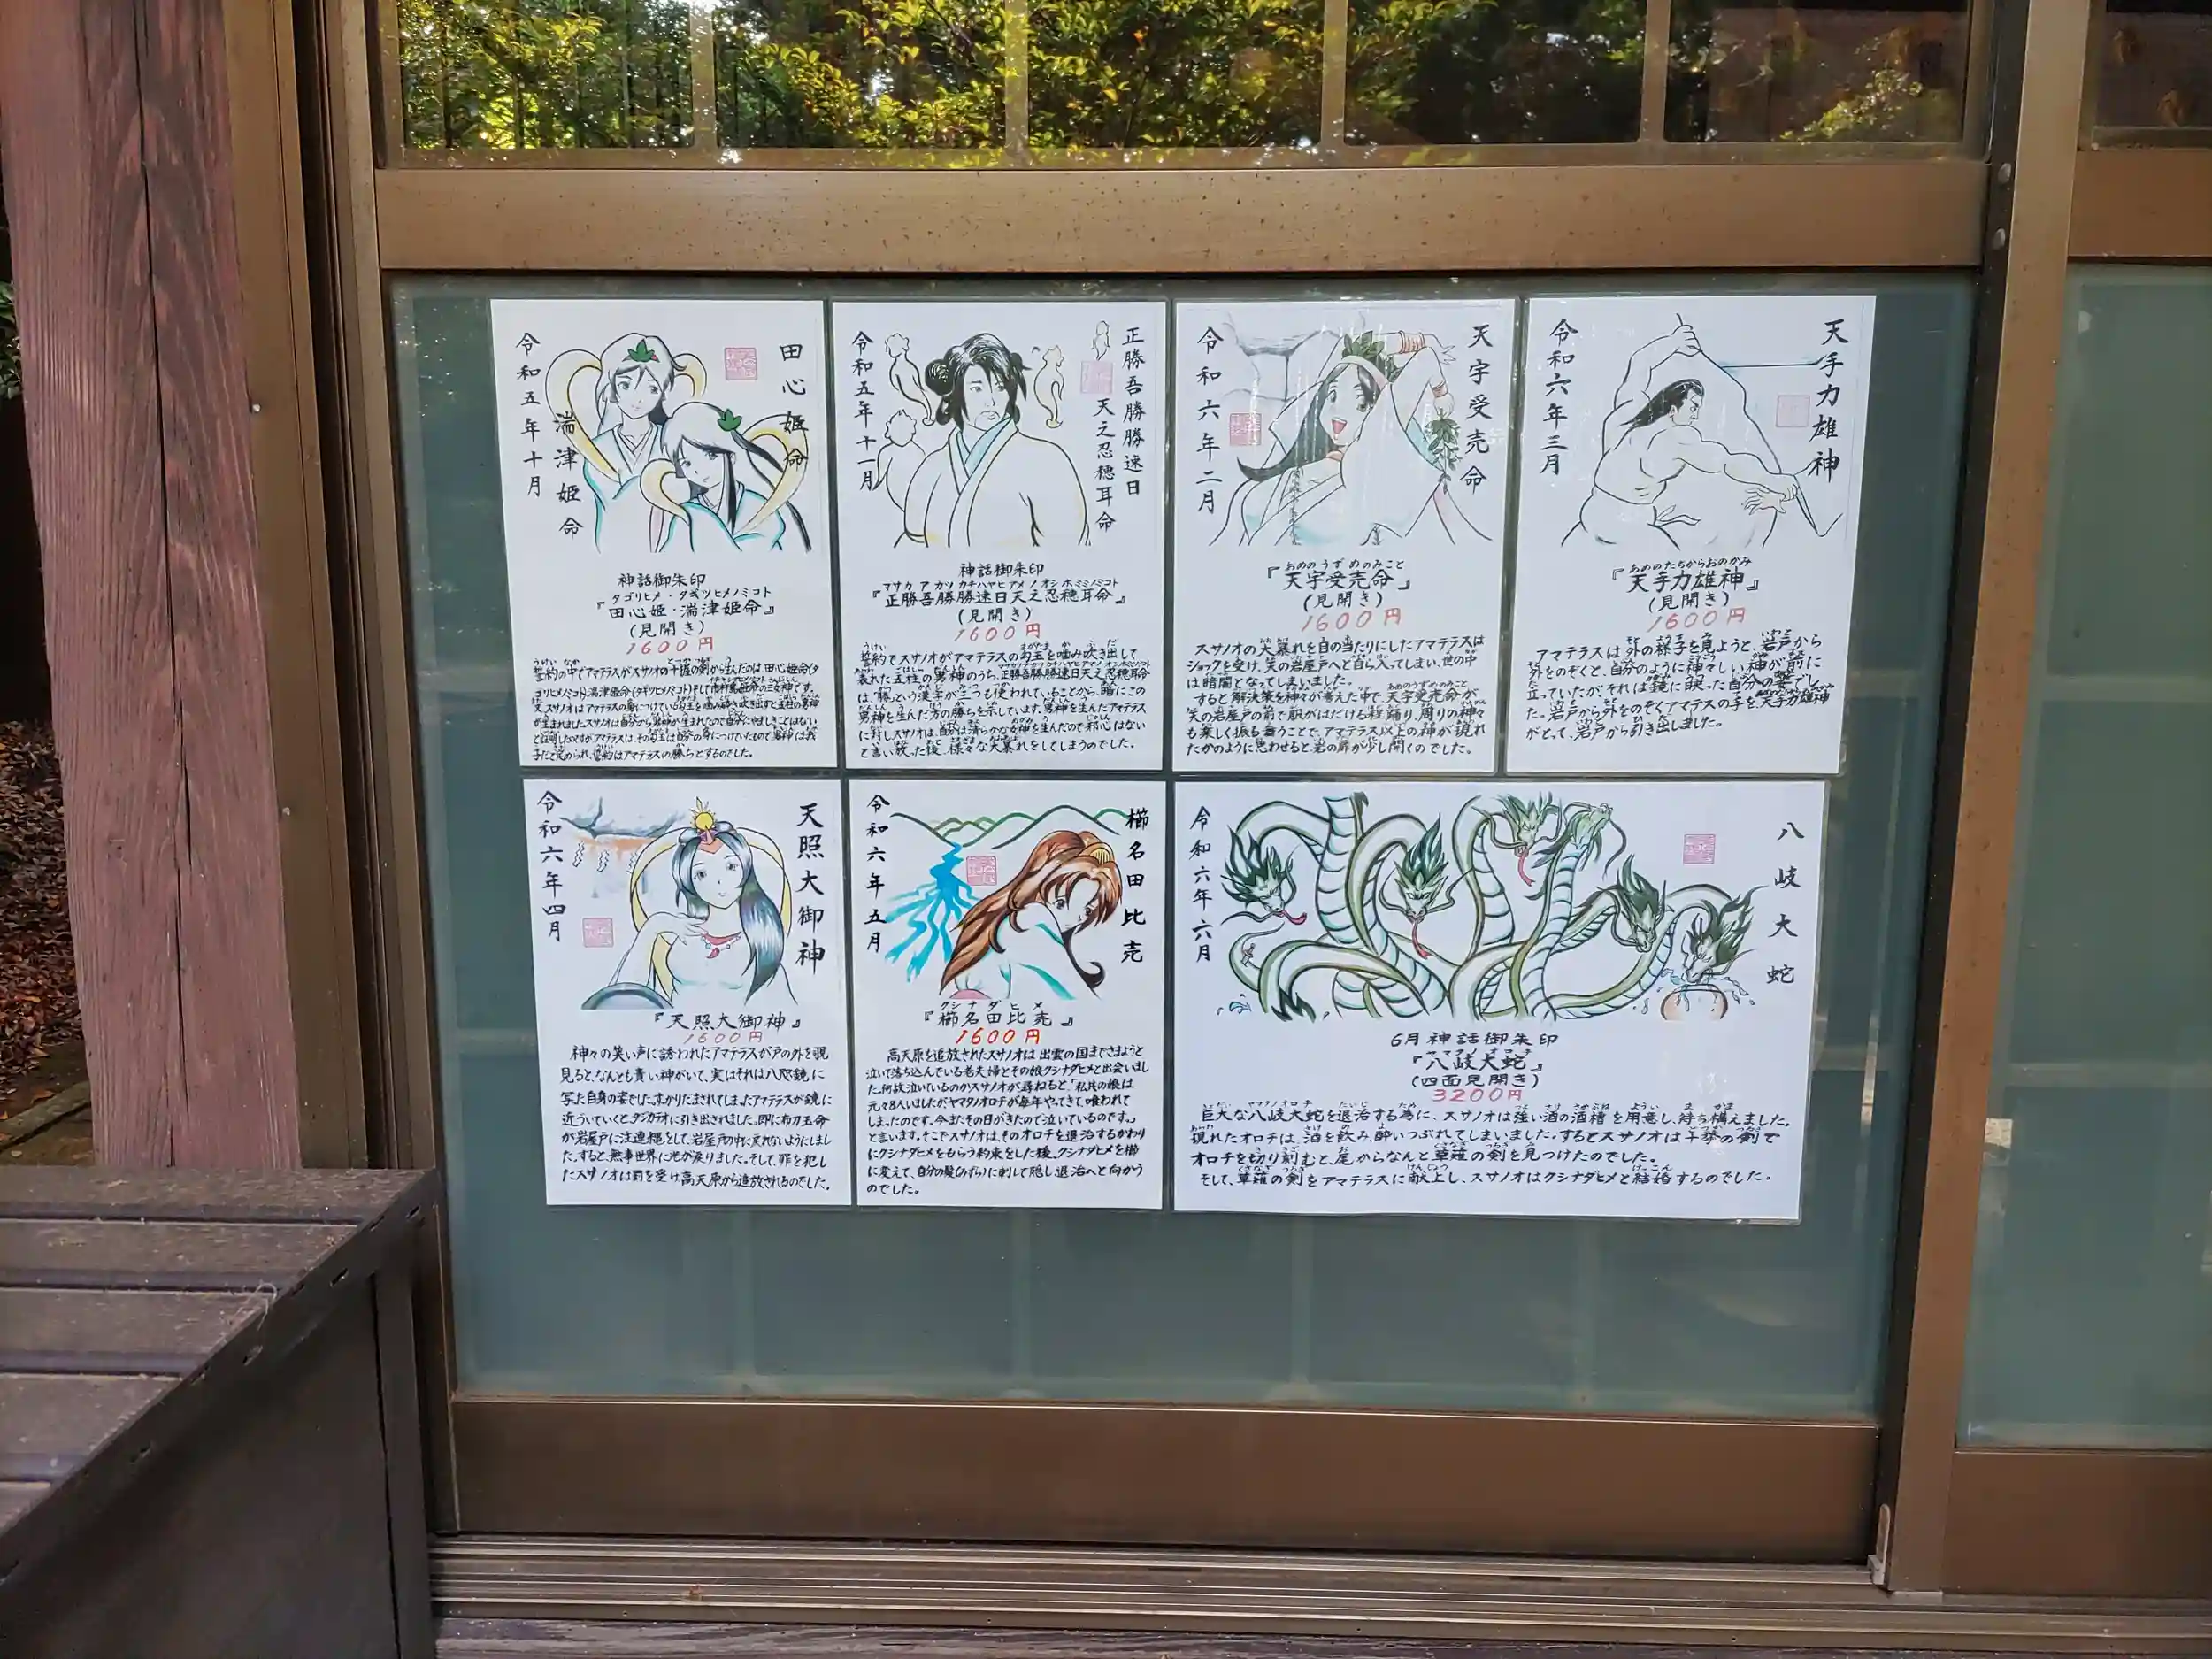 田心姫命
湍津姫命
令和五年十月
神話御朱印
タゴリヒメ・タギツヒメノミコト
『田心姫・湍津姫命』
(見開き)
1600円
正勝吾勝勝速日
天之忍穂耳命
令和五年十一月
神話御朱印
マサカ ア カツ カチハヤヒアメノオシホミミノミコト
『正勝吾勝勝速日天之忍穂耳命』
(見開き)
1600円
誓約でスサノオがアマテラスの勾玉を噛み吹き出して
表れた五柱の男神のうち、正勝吾勝勝速日天之忍穂耳命
は、「勝」という漢字が三つも使われていることから、暗にこの
男神を生んだ方の勝ちを示しています。男神を生んだアマテラス
に対しスサノオは、自分は清らかな女神を生んだので邪心はない
と言い放った後、様々な大暴れをしてしまうのでした。
天宇受売命
令和六年二月
あめのうずめのみこと
『天宇受売命』
(見開き)
1600円
スサノオの大暴れを目の当たりにしたアマテラスは
ショックを受け、天の岩屋戸へと自ら入ってしまい、世の中
は暗闇となってしまいました。
すると解決策を神々が考えた中で、天宇受売命が
天の岩屋戸の前で服がはだける程踊り、周りの神々
も楽しく振る舞うことで、アマテラス以上の神が現れ
たかのように思わせると、岩の扉が少し開くのでした。
天手力雄神
令和六年三月
あめのたちからおのかみ
『天手力雄神』
(見開き)
1600円
アマテラスは外の様子を見ようと、岩戸から
外をのぞくと、自分のように神々しい神が前に
立っていたが、それは鏡に映った自分の姿でし
た。岩戸から外をのぞくアマテラスの手を、天手力雄神
がとって、岩戸から引き出しました。
天照大御神
令和六年四月
『天照大御神』
1600円
神々の笑い声に誘われたアマテラスが戸の外を覗
見ると、なんとも貴い神がいて、実はそれは八咫鏡に
写た自身の姿でした。すかりだまされてしまったアマテラスが鏡に
近づいていくと、タヂカラオに引き出されました。即に布刀玉命
が岩屋戸に注連縄をして、岩屋戸の中に戻れないようにしまし
た。すると、無事世界に光が戻りました。そして、罪を犯し
たスサノオは罰を受け高天原から追放されるのでした。
櫛名田比売
令和六年五月
クシナダヒメ
『櫛名田比売』
1600円
高天原を追放されたスサノオは出雲の国までさまようと
泣いて落ち込んでいる老夫婦とその娘クシナダヒメと出会いまし
た。何故泣いているのかスサノオが尋ねると、「私共の娘は
元々8人いましたが、ヤマタノオロチが毎年やってきて、喰われて
しまったのです。今またその日がきたので泣いているのです。」
と言います。そこでスサノオは、そのオロチを退治するかわり
にクシナダヒメをもらう約束をした後、クシナダヒメを櫛
に変えて、自分の髪(みずら)に刺して隠し退治へと向かう
のでした。
八岐大蛇
令和六年六月
6月神話御朱印
ヤマタノオロチ
『八岐大蛇』
(四面見開き)
3200円
巨大な八岐大蛇を退治する為に、スサノオは強い酒の酒槽を用意し、待ち構えました。
現れたオロチは、酒を飲み、酔いつぶれてしまいました。するとスサノオは十拳の剣で
オロチを切り刻むと、尾からなんと草薙の剣を見つけたのでした。
そして、草薙の剣をアマテラスに献上し、スサノオはクシナダヒメと結婚するのでした。